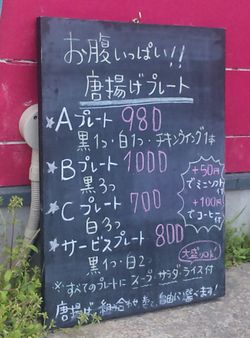 お腹いっぱい!!
唐揚げプレート
★Aプレート 980
黒1つ・白1つ・チキンウイング1本
★Bプレート 1000
黒3つ
★Cプレート 700
白3つ
★サービスプレート 800
黒1つ・白2つ
※すべてのプレートにスープ サラダ ライス付
唐揚げの組み合わせ 自由に選べます!
+50円
でミニソフト
付
+100円
でコーヒー付